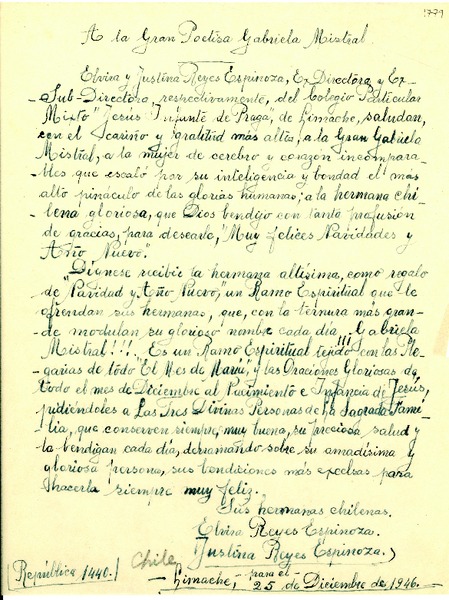 1779
A la Gran Poetisa Gabriela Mistral.
Elvira y Justina Reyes Espinoza, Ex-Directora y Ex-
-Sub-Directora, respectivamente, del Colegio Particular
Mixto "Jesús Infante de Praga", de Limache, saludan,
con el cariño y gratitud más alta, a la Gran Gabriela
Mistral, a la mujer de cerebro y corazón incompara-
bles que escaló por su inteligencia y bondad el más
alto pináculo de las glorias humanas; a la hermana chi-
lena gloriosa, que Dios bendijo con tanta profusión
de gracias, para desearle, "Muy felices Navidades y
Año Nuevo".
Dígnese recibir la hermana altísima, como regalo
de "Navidad y Año Nuevo", un Ramo Espiritual que le
ofrendan sus hermanas, que, con la ternura más gran-
de modulan su glorioso nombre cada día, ¡Gabriela
Mistral!!! Es un Ramo Espiritual tejido con las Ple-
garias de todo "El Mes de María", y las Oraciones Gloriosas de
todo el mes de Diciembre al Nacimiento e Infancia de Jesús,
pidiéndoles a Las Tres Divinas Personas de la Sagrada Fami-
lia, que conserven siempre, muy buena, su preciosa salud y
la bendigan cada día, derramando sobre su amadísima y
gloriosa persona, sus bendiciones más excelsas para
hacerla siempre muy feliz.
Sus hermanas chilenas.
Elvira Reyes Espinoza.
Justina Reyes Espinoza.
República 1440.
Chile
Limache, para el
25 de Diciembre de 1946.-